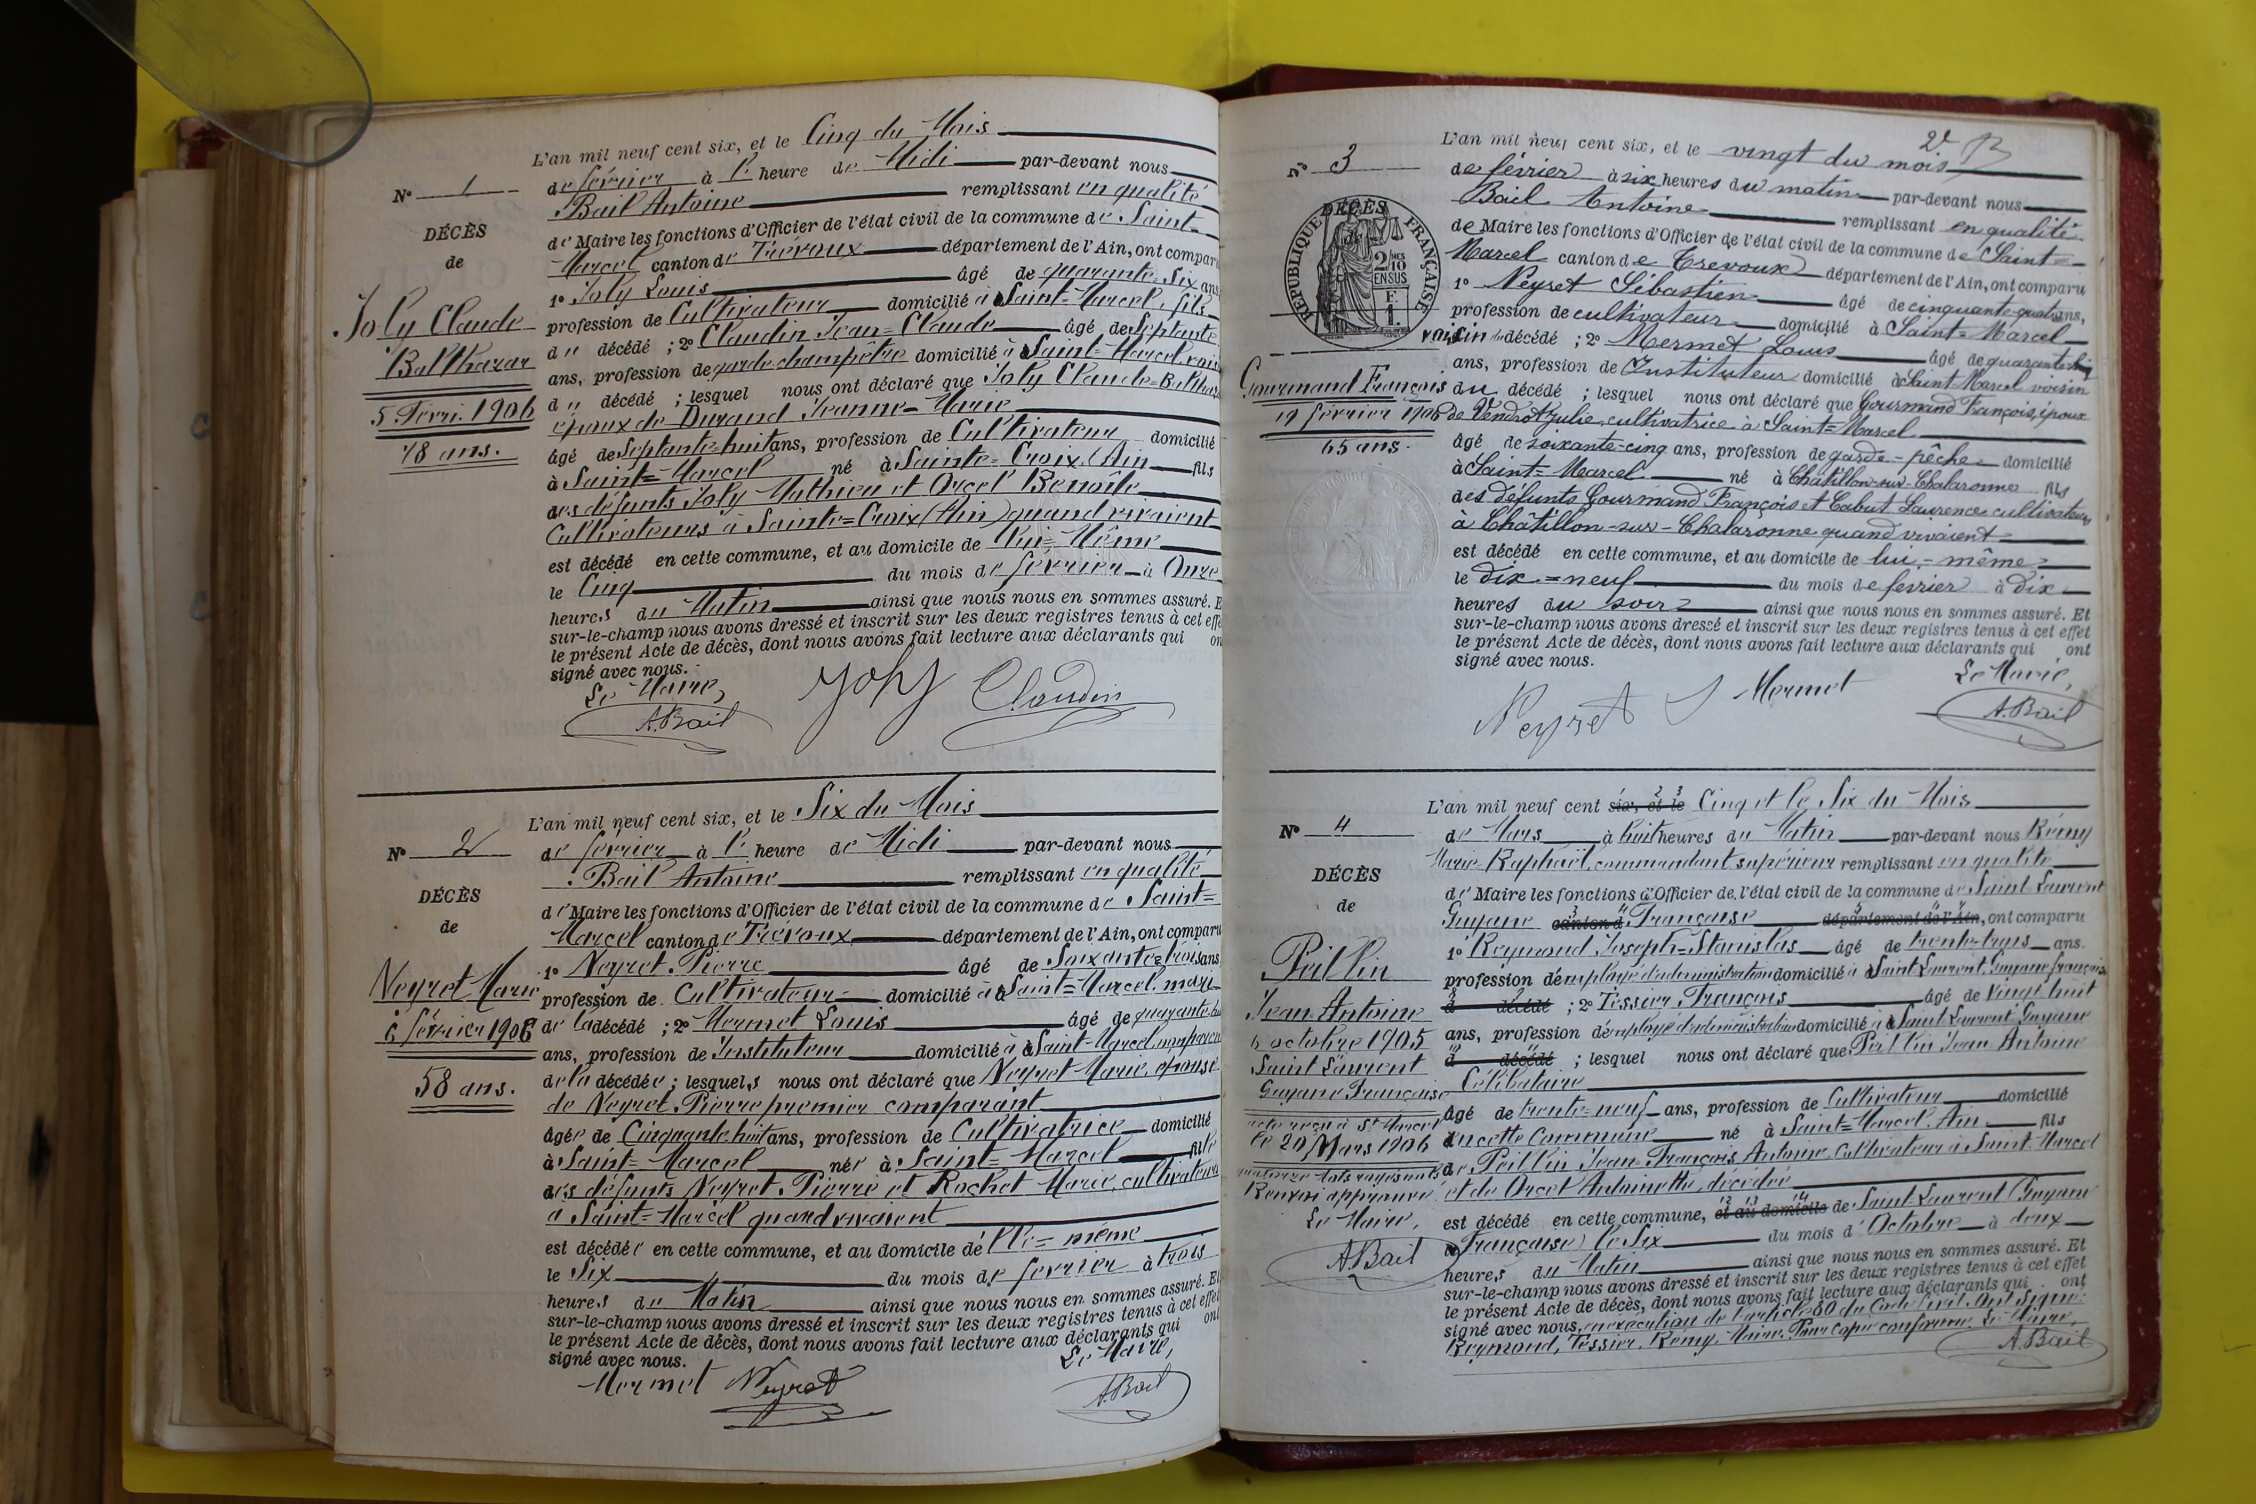 N° 1
DÉCÈS
de
Joly Claude
Balthazar
5 Févri. 1906
78 ans.
L'an mil neuf cent six, et le Cinq du Mois
de février à l' heure de Midi par-devant nous
Bail Antoine remplissant en qualité
de Maire les fonctions d'Officier de l'état civil de la commune de Saint=
Marcel canton de Trévoux département de l'Ain, ont comparu
1° Joly Louis âgé de quarante-six ans
profession de Cultivateur domicilié à Saint=Marcel, fils
du décédé ; 2° Claudin Jean=Claude âgé de Septante
ans, profession de garde-champêtre domicilié à Saint=Marcel, voisin
du décédé ; lesquel nous ont déclaré que Joly Claude=Balthazar
époux de Durand Jeanne-Marie
âgé de Septante-huit ans, profession de Cultivateur domicilié
à Saint=Marcel né à Sainte=Croix (Ain fils
des défunts Joly Mathieu et Orcel Benoîte
Cultivateurs à Sainte=Croix (Ain) quand vivaient
est décédé en cette commune, et au domicile de lui=Même
le Cinq du mois de février à Onze
heures du Matin ainsi que nous nous en sommes assuré. E
sur-le-champ nous avons dressé et inscrit sur les deux registres tenus à cet effe
le présent Acte de décès, dont nous avons fait lecture aux déclarants qui on
signé avec nous.
Le Maire,
A. Bail Joly Claudin
N° 2
DÉCÈS
de
Neyret Marie
6 février 1906
58 ans.
L'an mil neuf cent six, et le Six du Mois
de février à l' heure de Midi par-devant nous
Bail Antoine remplissant en qualité
de Maire les fonctions d'Officier de l'état civil de la commune de Saint=
Marcel canton de Trévoux département de l'Ain, ont comparu
1° Neyret Pierre âgé de Soixante=trois ans
profession de Cultivateur domicilié à Saint=Marcel, mari
de la décédé ; 2° Mermet Louis âgé de quarante
ans, profession de Instituteur domicilié à Saint-Marcel
de la décédée ; lesquels nous ont déclaré que Neyret Marie, épouse
de Neyret Pierre premier comparant
âgée de Cinquante huit ans, profession de Cultivatrice domicilié
à Saint=Marcel née à Saint=Marcel fille
des défunts Neyret Pierre et Rochet Marie, cultivateurs
à Saint=Marcel quand vivaient
est décédée en cette commune, et au domicile de elle=même
le Six du mois de février à trois
heures du Matin ainsi que nous nous en sommes assuré. Et
sur-le-champ nous avons dressé et inscrit sur les deux registres tenus à cet effet
le présent Acte de décès, dont nous avons fait lecture aux déclarants qui ont
signé avec nous.
Le Maire,
Mermet Neyret A. Bail
N° 3
RÉPUBLIQUE FRANÇAISE
DÉCÈS
de
2/10 EN SUS
F. 1.
Gourmand François
19 février 1906
65 ans.
L'an mil neuf cent six, et le vingt du mois
de février à six heures du matin par-devant nous
Bail Antoine remplissant en qualité
de Maire les fonctions d'Officier de l'état civil de la commune de Saint=
Marcel canton de Trevoux département de l'Ain, ont comparu
1° Neyret Sébastien âgé de cinquante-quatre ans,
profession de cultivateur domicilié à Saint=Marcel
voisin du décédé ; 2° Mermet Louis âgé de quarante-cinq
ans, profession de Instituteur domicilié à Saint Marcel voisin
du décédé ; lesquel nous ont déclaré que Gourmand François, époux
de Vendrot Julie, cultivatrice à Saint=Marcel
âgé de soixante-cinq ans, profession de garde-pêche domicilié
à Saint=Marcel né à Châtillon-sur-Chalaronne fils
des défunts Gourmand François et Cabut Laurence cultivateurs
à Châtillon-sur-Chalaronne quand vivaient
est décédé en cette commune, et au domicile de lui-même
le dix=neuf du mois de fevrier à dix
heures du soir ainsi que nous nous en sommes assuré. Et
sur-le-champ nous avons dressé et inscrit sur les deux registres tenus à cet effet
le présent Acte de décès, dont nous avons fait lecture aux déclarants qui ont
signé avec nous.
Le Maire,
Neyret Mermet A. Bail
N° 4
DÉCÈS
de
Peillin
Jean Antoine
6 octobre 1905
Saint Laurent
Guyane Française
acte reçu à St Marcel
le 20 Mars 1906
quatorze mots rayés nuls
Renvoi approuvé
Le Maire,
A. Bail
L'an mil neuf cent six, et le Cinq et le Six du Mois
de Mars à huit heures du Matin par-devant nous Rémy
Marie Raphaël, commandant supérieur remplissant en qualité
de Maire les fonctions d'Officier de l'état civil de la commune de Saint Laurent
Guyane canton d Française département de l'Ain, ont comparu
1° Reymond Joseph-Stanislas âgé de trente-trois ans.
profession d'employé d'administration domicilié à Saint Laurent Guyane française
d décédé ; 2° Tessier François âgé de Vingt huit
ans, profession d'employé d'administration domicilié à Saint Laurent Guyane
d décédé ; lesquel nous ont déclaré que Peillin Jean Antoine
Célibataire
âgé de trente=neuf ans, profession de Cultivateur domicilié
en cette Commune né à Saint=Marcel Ain fils
de Peillin Jean François Antoine, Cultivateur à Saint Marcel
et de Orcet Antoinette, décédée
est décédé en cette commune, et au domicile de Saint Laurent (Guyane
Française) le Six du mois d'Octobre à deux
heures du Matin ainsi que nous nous en sommes assuré. Et
sur-le-champ nous avons dressé et inscrit sur les deux registres tenus à cet effet
le présent Acte de décès, dont nous avons fait lecture aux déclarants qui ont
signé avec nous, en exécution de l'article 80 du Code Civil. Ont signé:
Reymond, Tessier, Rémy, Maire. Pour copie conforme. Le Maire,
A. Bail